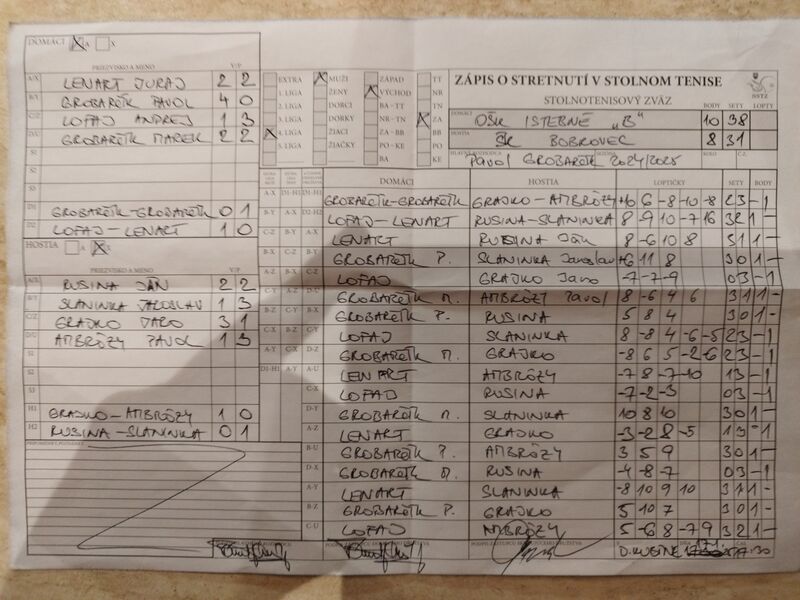 DOMÁCI A X
PRIEZVISKO A MENO V/P
A/X LENART JURAJ 2 2
B/Y GROBARČÍK PAVOL 4 0
C/Z LOFAJ ANDREJ 1 3
D/U GROBARČÍK MAREK 2 2
S1
S2
S3
D1 GROBARČÍK-GROBARČÍK 0 1
D2 LOFAJ-LENART 1 0
HOSTIA A X
PRIEZVISKO A MENO V/P
A/X RUSINA JÁN 2 2
B/Y SLANINKA JAROSLAV 1 3
C/Z GRAJKO JARO 3 1
D/U AMBRÓZY PAVOL 1 3
S1
S2
S3
H1 GRAJKO-AMBRÓZY 1 0
H2 RUSINA-SLANINKA 0 1
EXTRA MUŽI ZÁPAD TT
1. LIGA ŽENY VÝCHOD NR
2. LIGA DORCI BA-TT TN
3. LIGA DORKY NR-TN ZA
4. LIGA ŽIACI ZA-BB BB
5. LIGA ŽIAČKY PO-KE PO
BA KE
ZÁPIS O STRETNUTÍ V STOLNOM TENISE
STOLNOTENISOVÝ ZVÄZ
SSTZ
DOMÁCI OŠK ISTEBNÉ „B" BODY 10 SETY 38 LOPTY
HOSTIA ŠK BOBROVEC 8 31
HLAVNÝ ROZHODCA PAVOL GROBARČÍK 2024/2025 KOLO Č.Z.
DOMÁCI HOSTIA LOPTIČKY SETY BODY
GROBARČÍK-GROBARČÍK GRAJKO-AMBRÓZY 10 6 -8 -10 -8 2 3 - 1
LOFAJ-LENART RUSINA-SLANINKA 8 -9 10 -7 16 3 2 1 -
LENART RUSINA JÁN 8 -6 10 8 3 1 1 -
GROBARČÍK P. SLANINKA Jaroslav 6 11 8 3 0 1 -
LOFAJ GRAJKO Jaro -7 -7 -9 0 3 - 1
GROBARČÍK M. AMBRÓZY Pavol 8 -6 4 6 3 1 1 -
GROBARČÍK P. RUSINA 5 8 4 3 0 1 -
LOFAJ SLANINKA 8 -8 4 -6 -5 2 3 - 1
GROBARČÍK M. GRAJKO -8 6 5 -2 -6 2 3 - 1
LENART AMBRÓZY -7 8 -7 -10 1 3 - 1
LOFAJ RUSINA -7 -2 -3 0 3 - 1
GROBARČÍK M. SLANINKA 10 8 10 3 0 1 -
LENART GRAJKO -3 -2 8 -5 1 3 - 1
GROBARČÍK P. AMBRÓZY 3 5 9 3 0 1 -
GROBARČÍK M. RUSINA -4 -8 -7 0 3 - 1
LENART SLANINKA -8 10 9 10 3 1 1 -
GROBARČÍK P. GRAJKO 5 10 7 3 0 1 -
LOFAJ AMBRÓZY 5 -6 8 -7 9 3 2 1 -